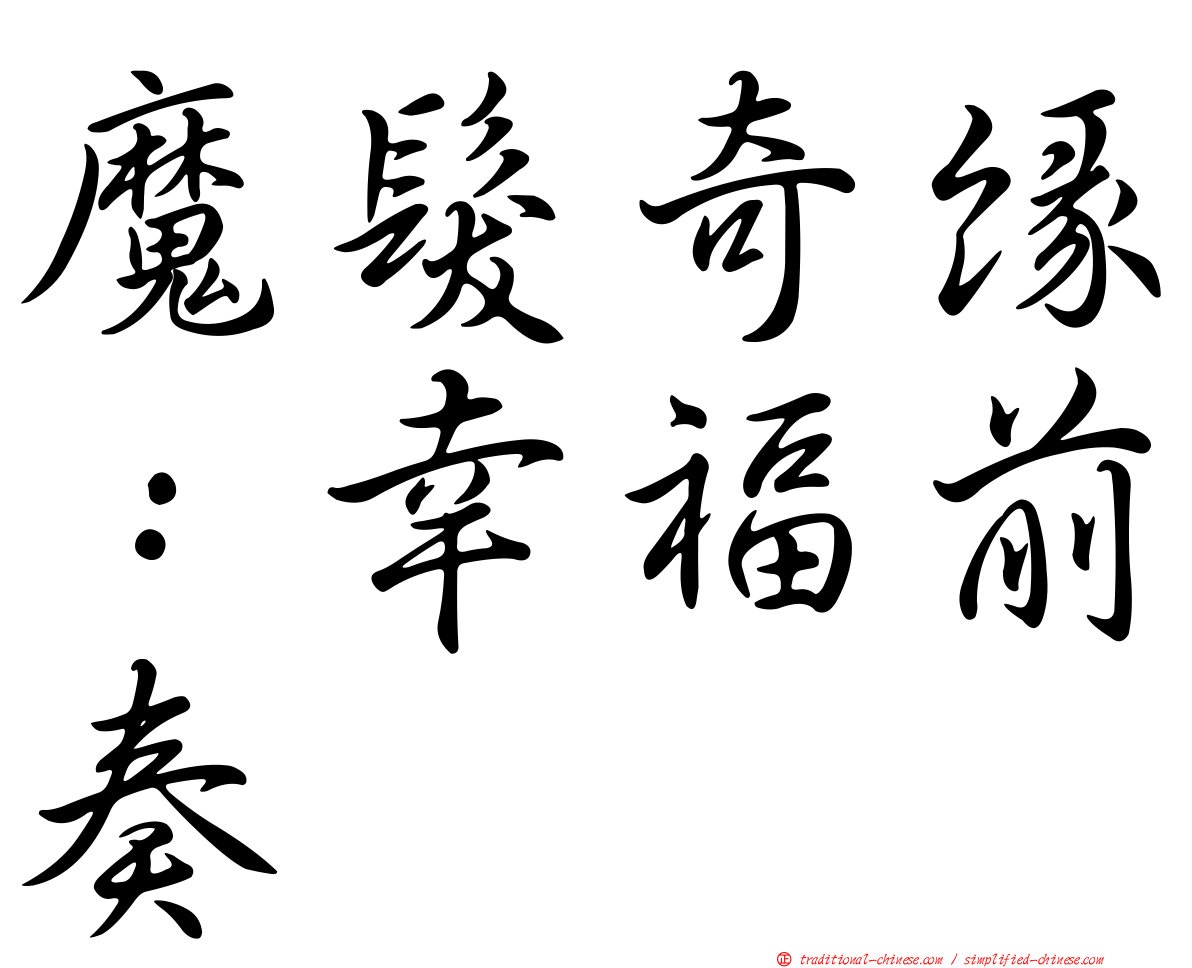 魔髮奇緣
：幸福前
奏
正 traditional-chinese.com / simplified-chinese.com